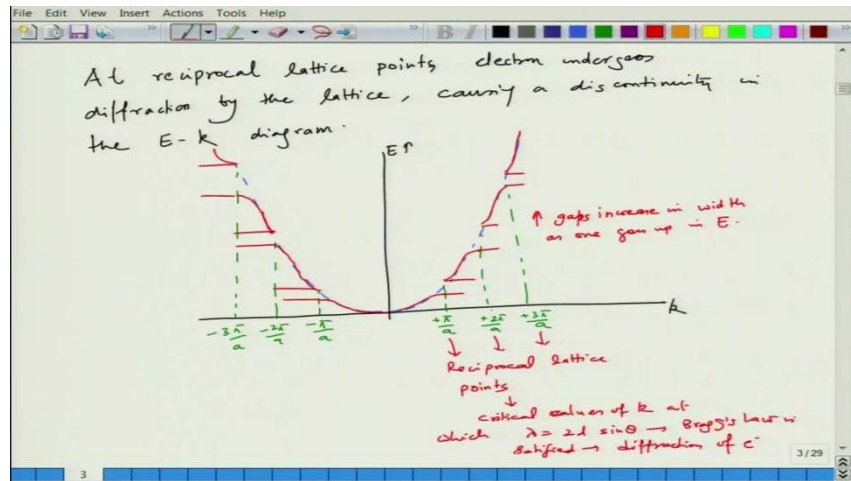 File Edit View Insert Actions Tools Help
At reciprocal lattice points electron undergoes
diffraction by the lattice, causing a discontinuity in
the E-k diagram.
E↑
↑ gaps increase in width
as one goes up in E.
k
-3π/a -2π/a -π/a +π/a +2π/a +3π/a
↓ ↓ ↓
Reciprocal lattice
points
↓
critical values of k at
which λ = 2d sinθ → Bragg's Law is
satisfied → diffraction of e⁻
3/29
3